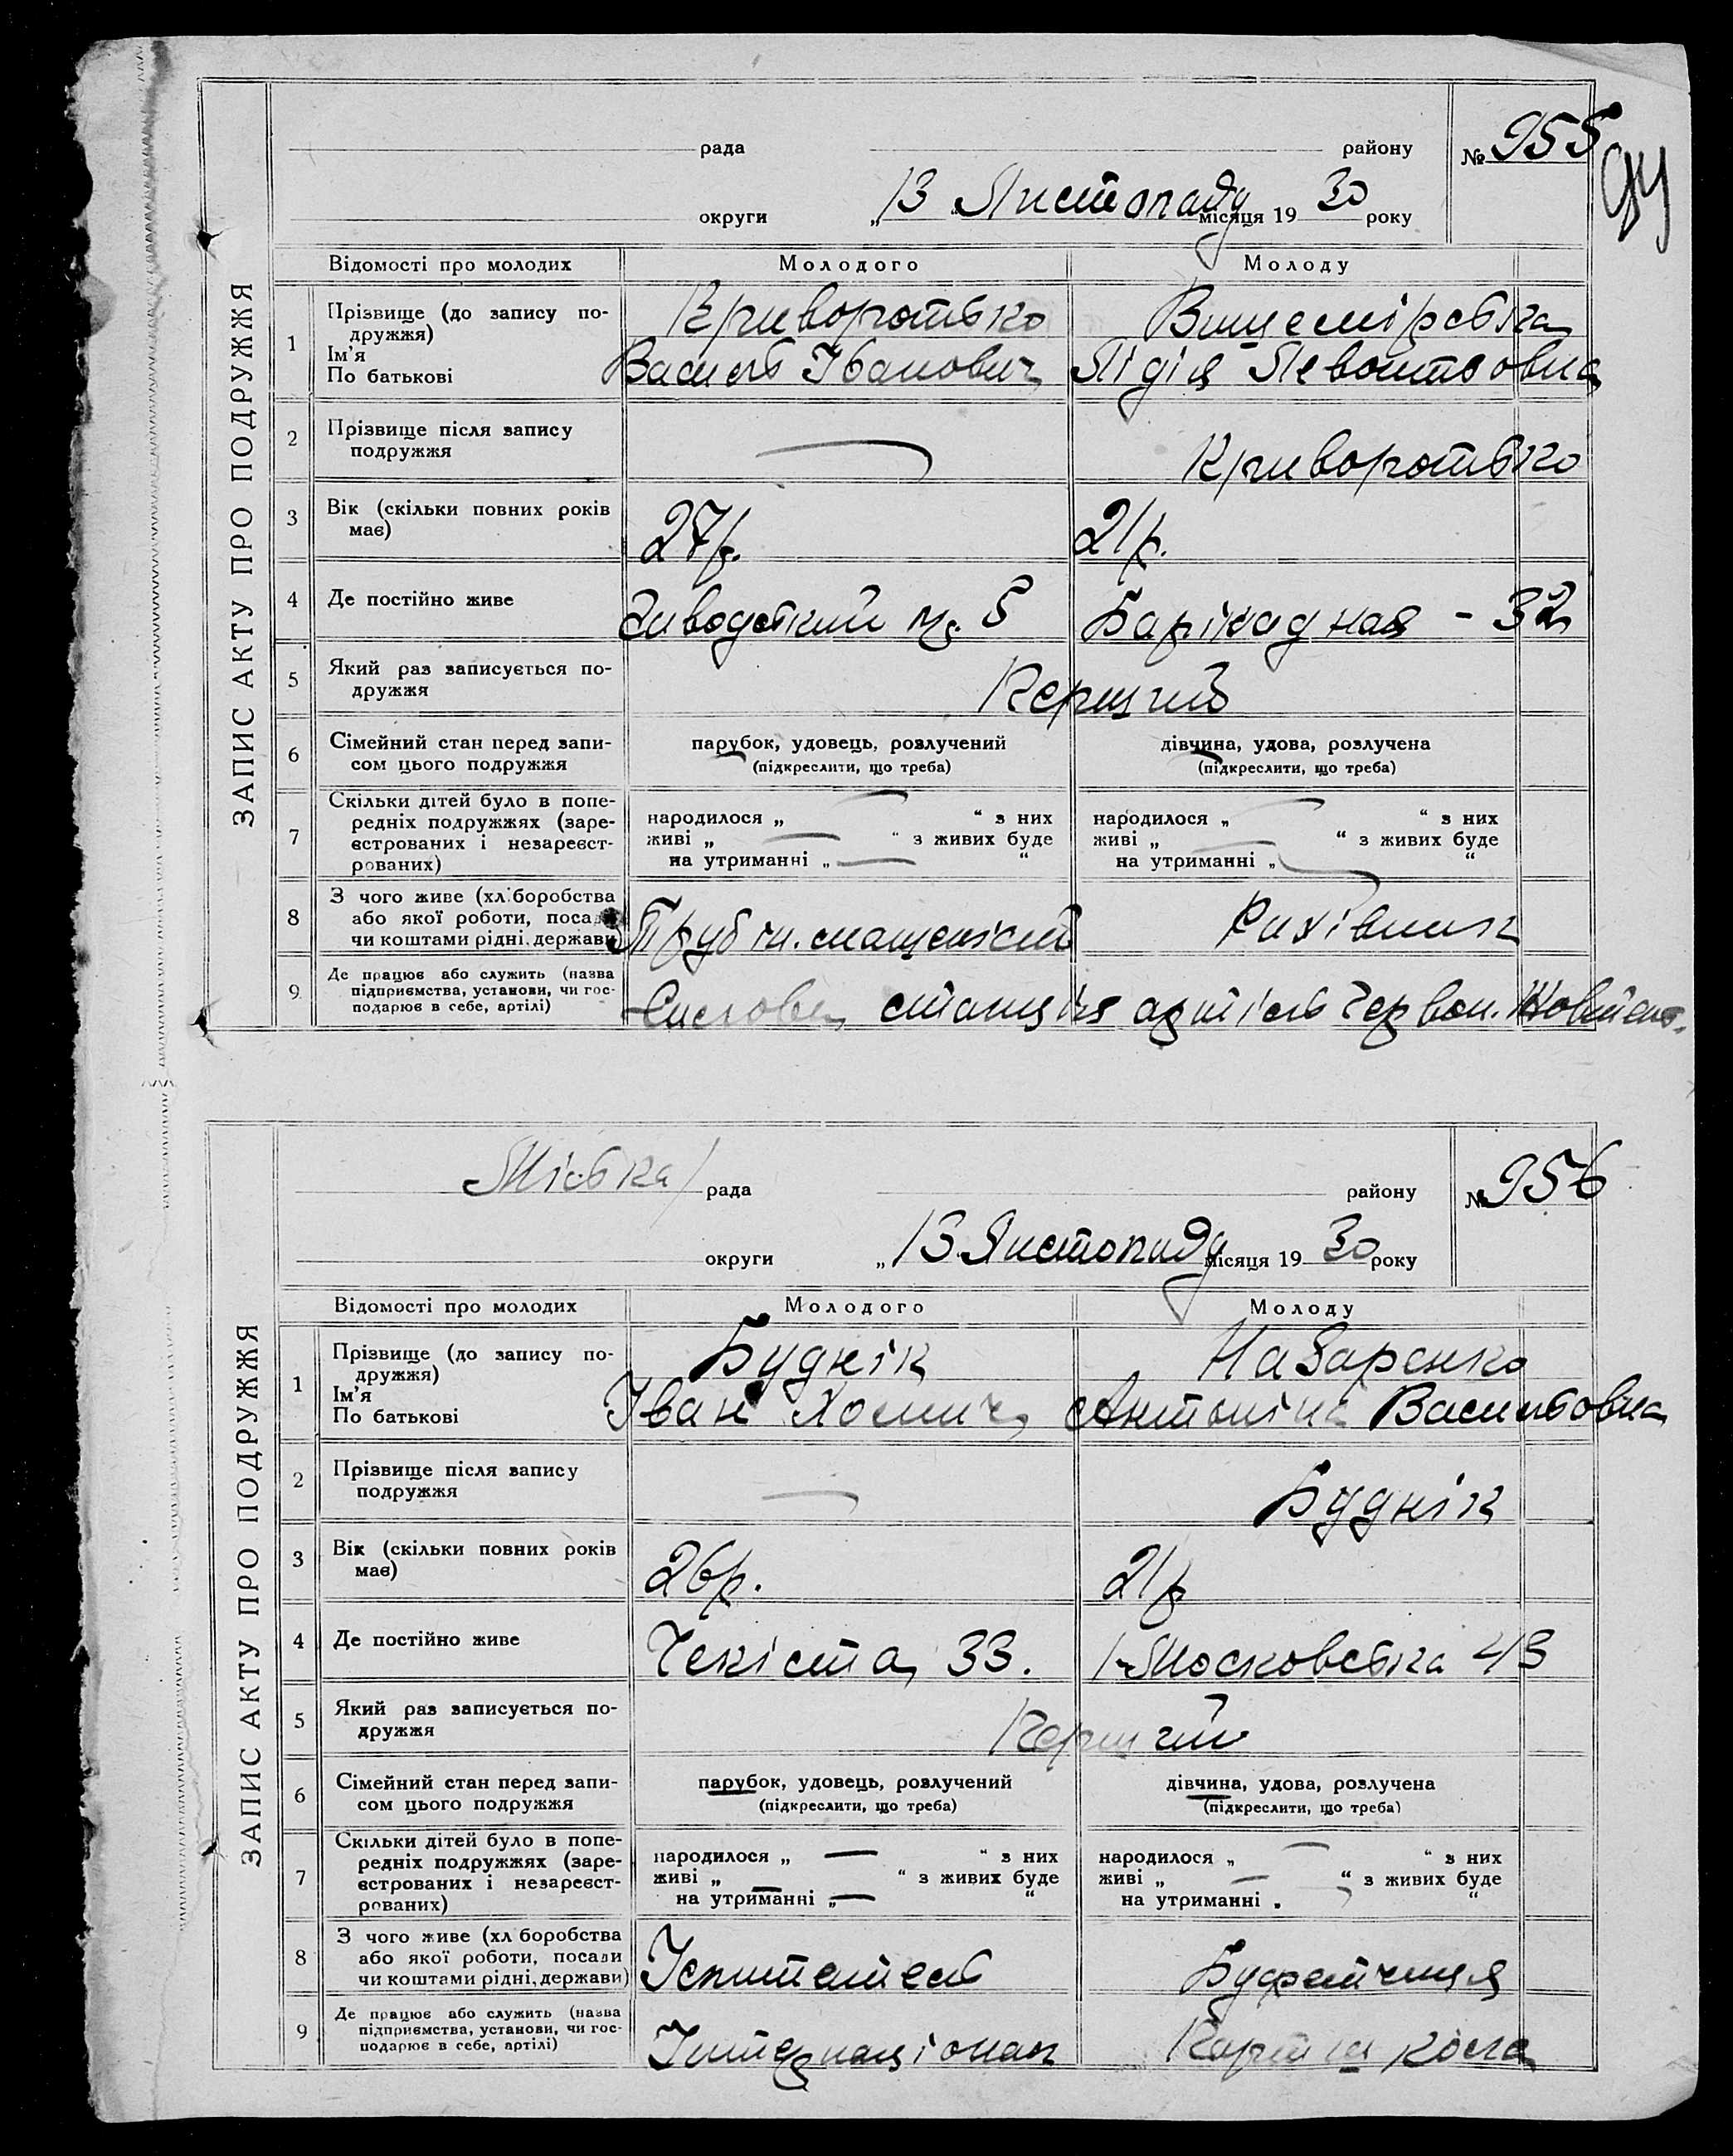 № 955
94
рада району
округи „13 Листопаду місяця 1930 року
ЗАПИС АКТУ ПРО ПОДРУЖЖЯ
Відомості про молодих Молодого Молоду
1 Прізвище (до запису по- Криворотько
дружжя)
Ім'я Василь Іванович Лідія Левонтьовна
По батькові
2 Прізвище після запису
подружжя Криворотько
3 Вік (скільки повних років
має) 27р. 21р.
4 Де постійно живе 5 Барікадная - 32
5 Який раз записується по-
дружжя Перший
6 Сімейний стан перед запи- парубок, удовець, розлучений дівчина, удова, розлучена
сом цього подружжя (підкреслити, що треба) (підкреслити, що треба)
7 Скільки дітей було в попе-
редніх подружжях (заре- народилося „ — “ з них народилося „ — “ з них
єстрованих і незареєст- живі „ — “ з живих буде живі „ “ з живих буде
рованих) на утриманні „ — “ на утриманні „ — “
8 З чого живе (хліборобства
або якої роботи, посади
чи коштами рідні, держави
9 Де працює або служить (назва
підприємства, установи, чи гос- станція артіль Червон.
подарює в себе, артілі)
Міська рада району № 956
округи „13 Листопаду місяця 1930 року
ЗАПИС АКТУ ПРО ПОДРУЖЖЯ
Відомості про молодих Молодого Молоду
1 Прізвище (до запису по- Буднік Назаренко
дружжя)
Ім'я Іван Хомич Антоніна Васильовна
По батькові
2 Прізвище після запису
подружжя — Буднік
3 Вік (скільки повних років
має) 26р. 21р
4 Де постійно живе Чекіста 33. Московська 43
5 Який раз записується по-
дружжя Перший
6 Сімейний стан перед запи- парубок, удовець, розлучений дівчина, удова, розлучена
сом цього подружжя (підкреслити, що треба) (підкреслити, що треба)
7 Скільки дітей було в попе-
редніх подружжях (заре- народилося „ — “ з них народилося „ — “ з них
єстрованих і незареєст- живі „ — “ з живих буде живі „ — “ з живих буде
рованих) на утриманні „ — “ на утриманні „ “
8 З чого живе (хліборобства
або якої роботи, посади
чи коштами рідні, держави) Іспитатель Буфетчиця
9 Де працює або служить (назва
підприємства, установи, чи гос-
подарює в себе, артілі) Інтернаціонал